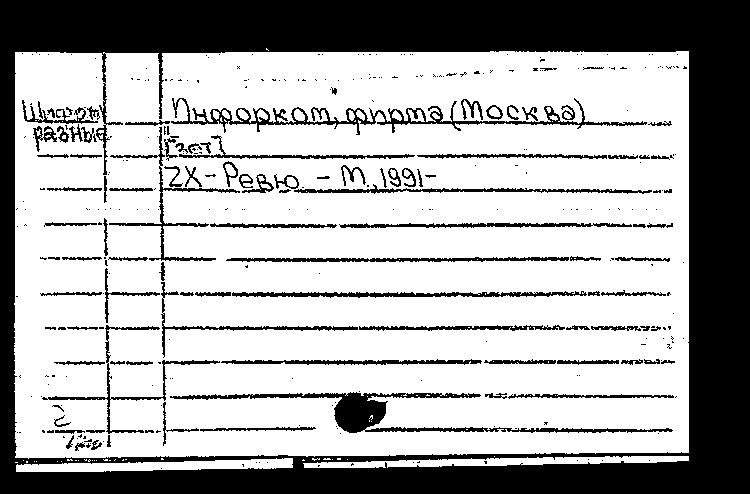 Шифры Инфорком, фирма (Москва)
разные "
[зет]
ZX-Ревю - М., 1991-
2